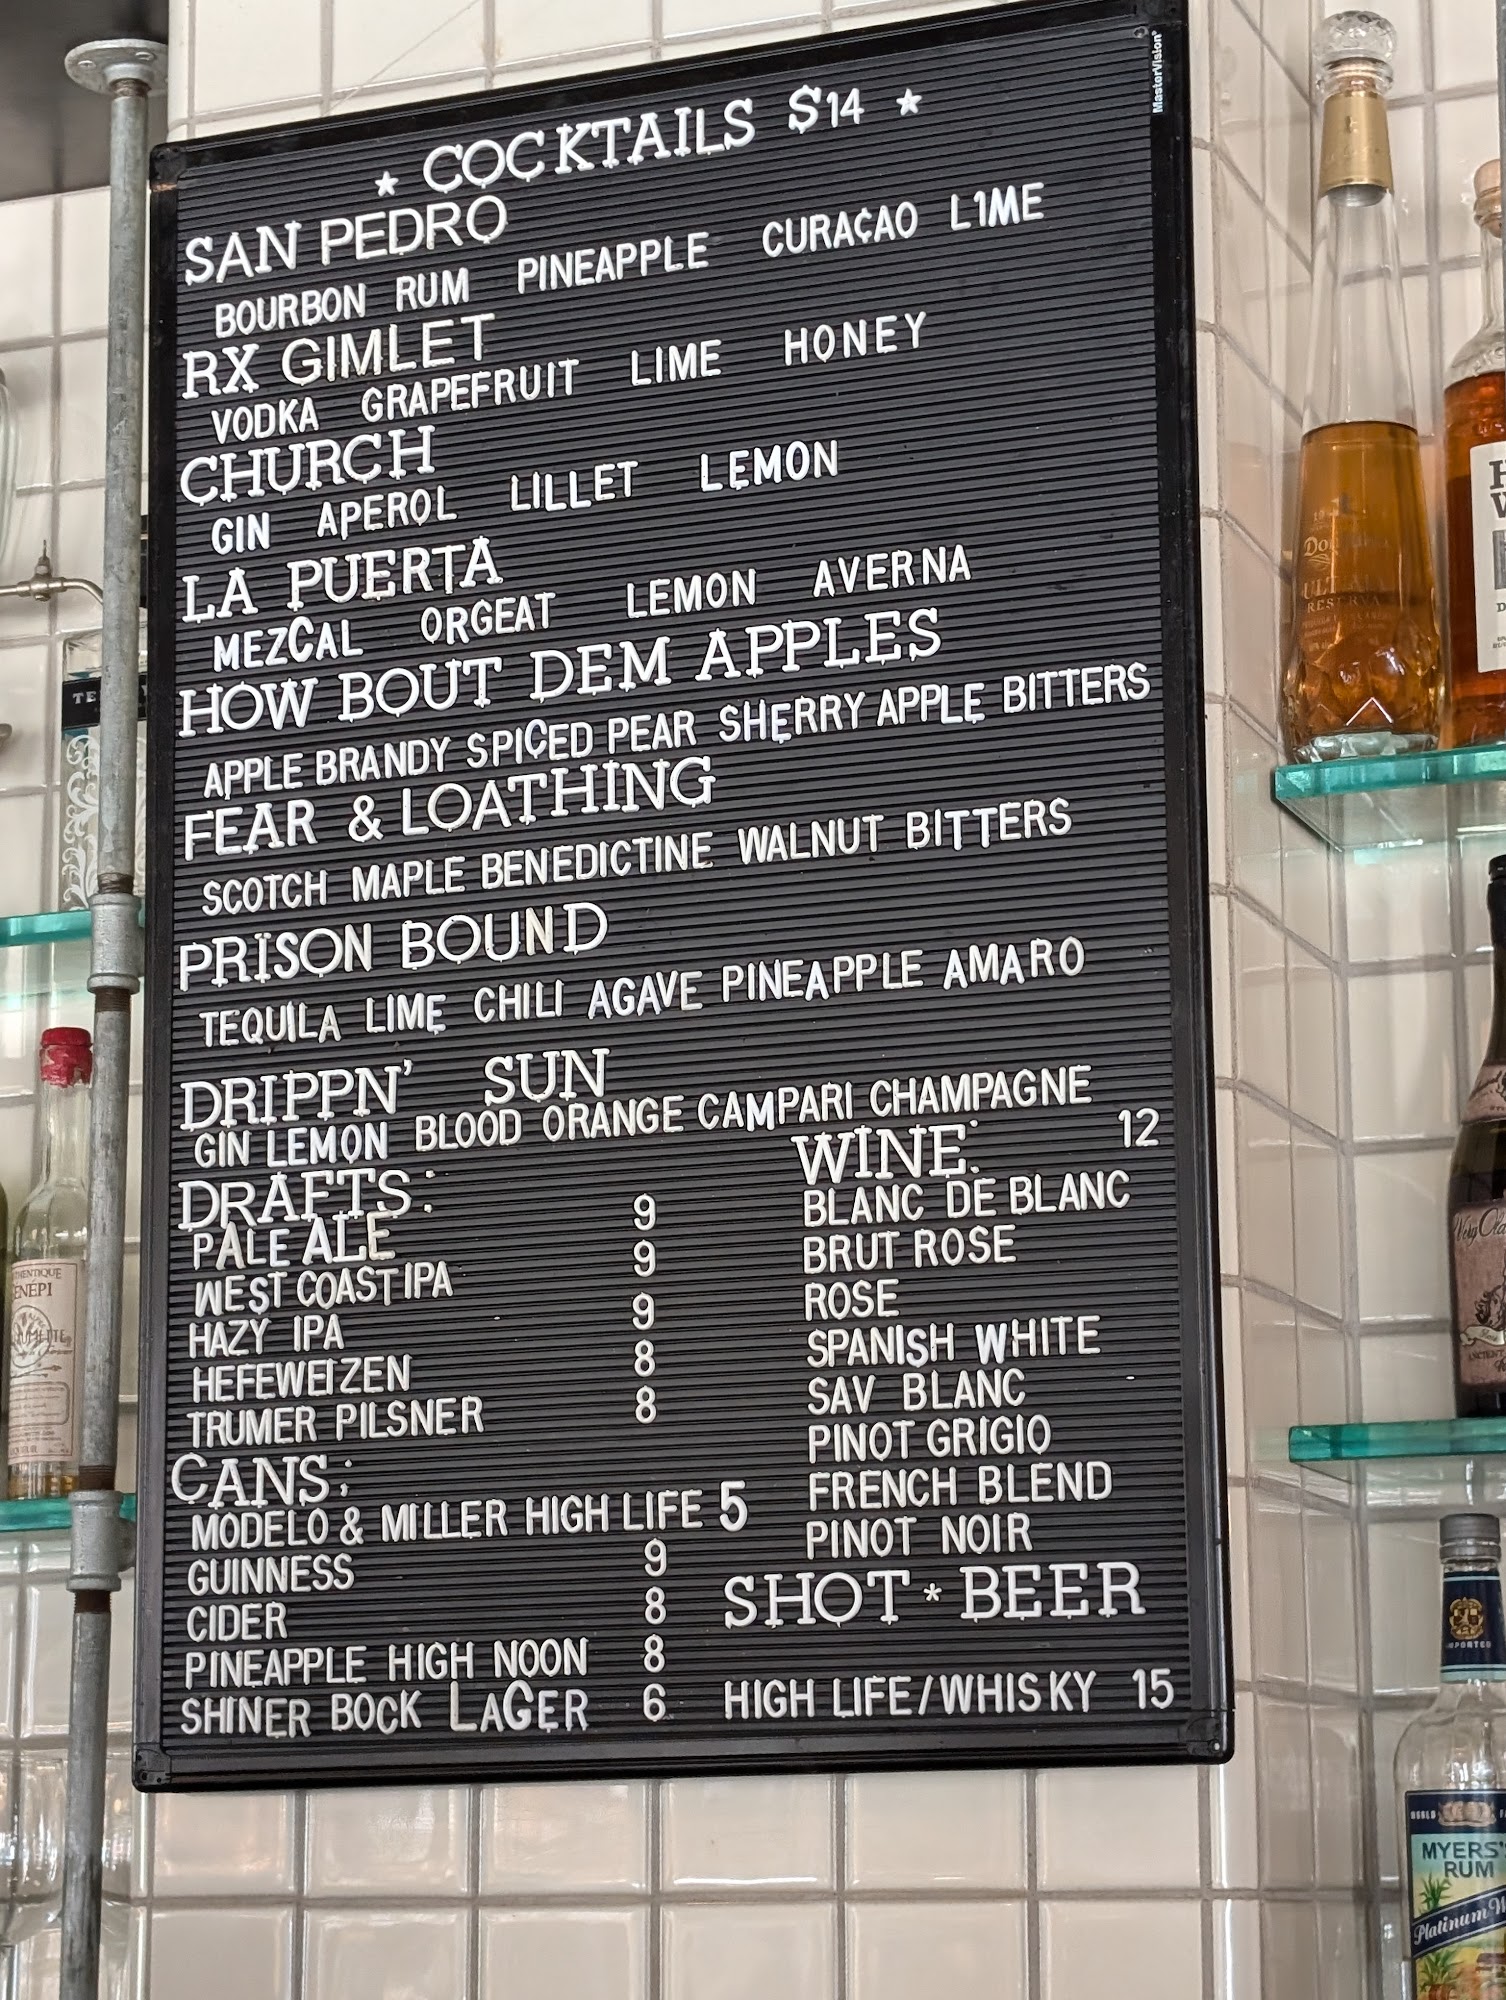 MasterVision®
★ COCKTAILS $14 ★
SAN PEDRO
BOURBON RUM PINEAPPLE CURAÇAO L1ME
RX GIMLET
VODKA GRAPEFRUIT LIME HONEY
CHURCH
GIN APEROL LILLET LEMON
LA PUERTA
MEZCAL ORGEAT LEMON AVERNA
HOW BOUT DEM APPLES
APPLE BRANDY SPICED PEAR SHERRY APPLE BITTERS
FEAR & LOATHING
SCOTCH MAPLE BENEDICTINE WALNUT BITTERS
PRISON BOUND
TEQUILA LIME CHILI AGAVE PINEAPPLE AMARO
DRIPPN' SUN
GIN LEMON BLOOD ORANGE CAMPARI CHAMPAGNE
DRAFTS:
PALE ALE 9
WEST COAST IPA 9
HAZY IPA 9
HEFEWEIZEN 8
TRUMER PILSNER 8
CANS:
MODELO & MILLER HIGH LIFE 5
GUINNESS 9
CIDER 8
PINEAPPLE HIGH NOON 8
SHINER BOCK LAGER 6
WINE: 12
BLANC DE BLANC
BRUT ROSE
ROSE
SPANISH WHITE
SAV BLANC
PINOT GRIGIO
FRENCH BLEND
PINOT NOIR
SHOT * BEER
HIGH LIFE/WHISKY 15
RESERVA
IMPORTED
MYERS'S
RUM
Platinum